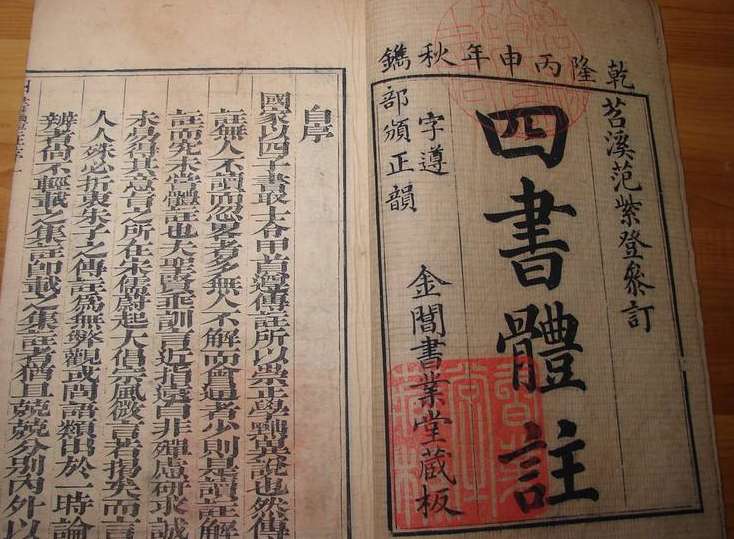 乾隆丙申年秋鐫
苕溪范紫登叅訂
四書體註
字遵
部頒正韻
金閶書業堂藏板
自序
國家以四子書取士各甲首遵傳註所以崇正學黜異說也然傳
註無人不讀而忽畧者多無人不解而會通者少則是讀註解
註而究未嘗體註也夫聖賢垂訓言近指遠自非殫慮研求誠
未易得其意旨之所在宋儒蔚起大倡宗風微言若揭矣而言
人人殊必折衷朱子之傳註爲無弊觀或問語類出於一時論
辨者尚不輕載之集註即載之集註者猶且兢兢分別內外以